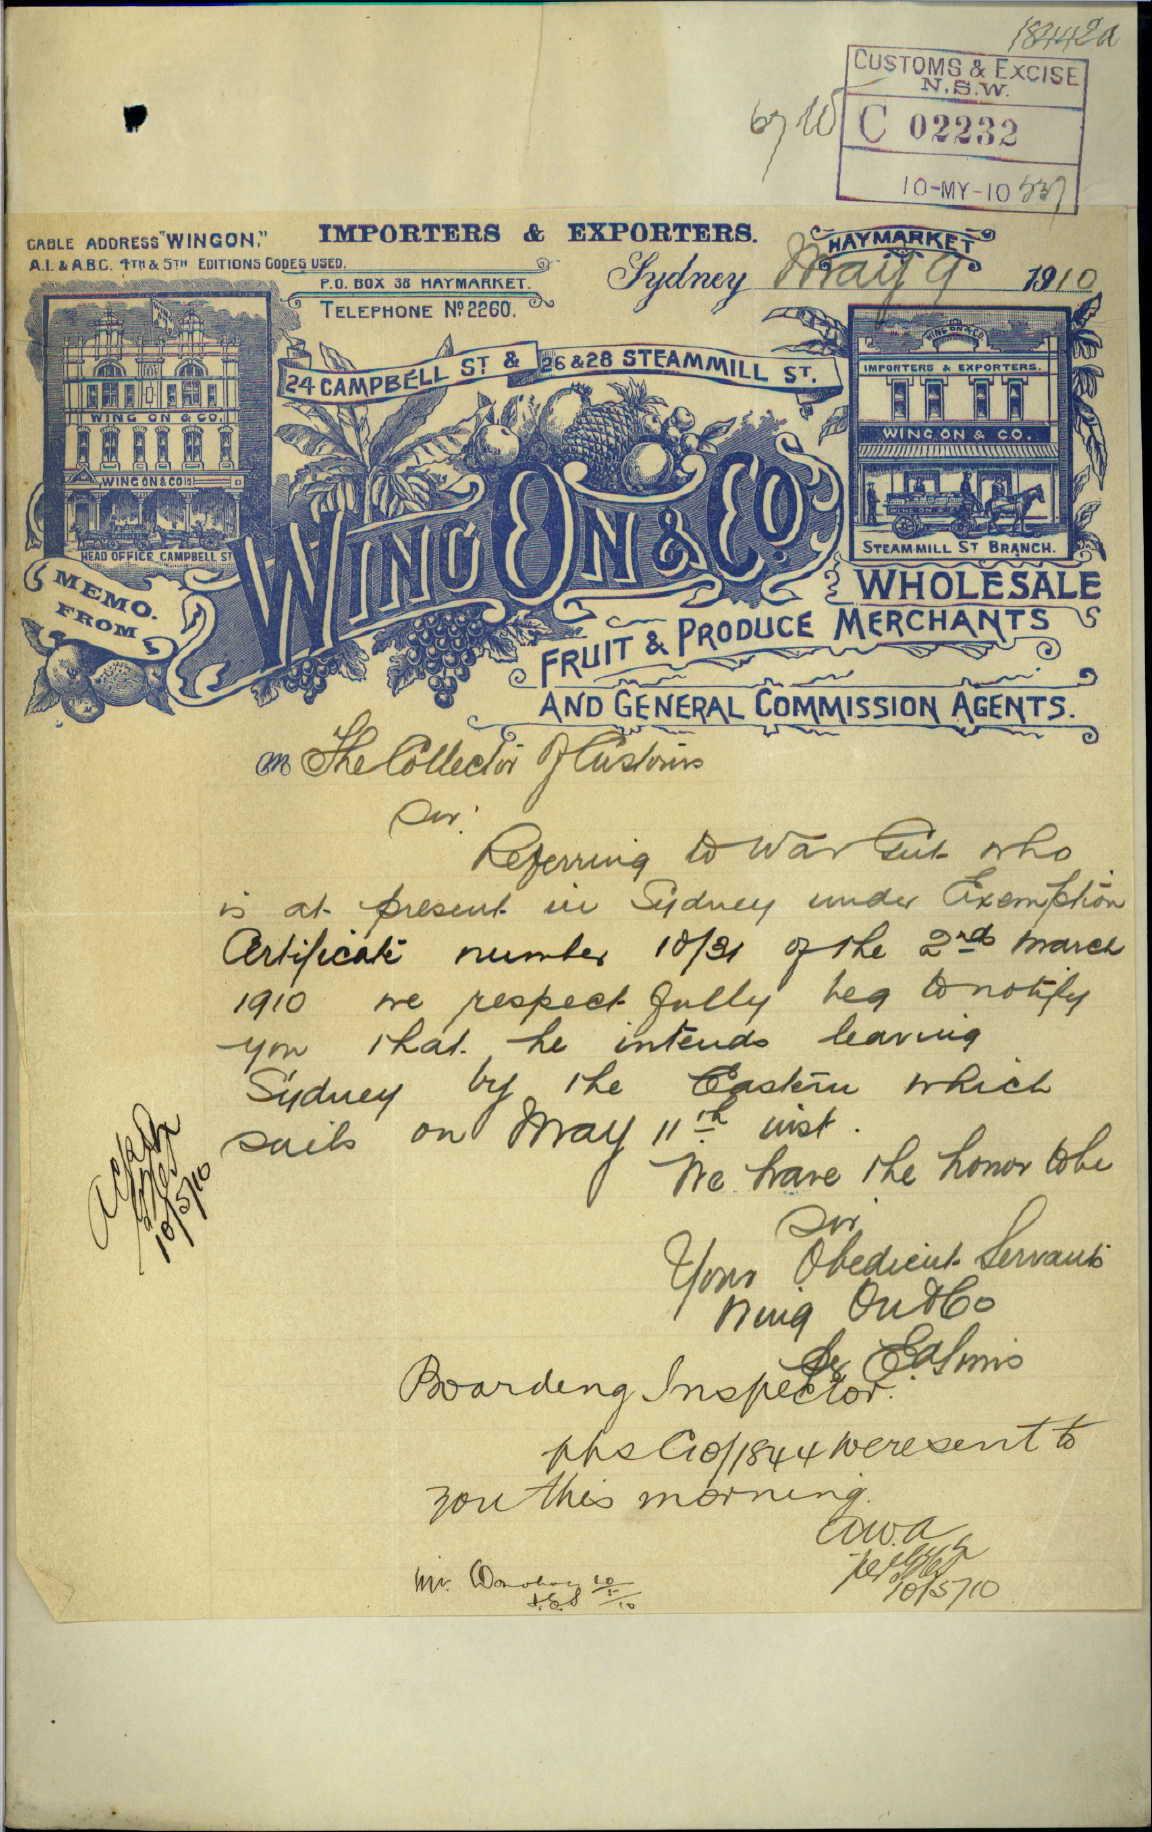 18442a
CUSTOMS & EXCISE
N.S.W.
C 02232
10-MY-10
CABLE ADDRESS "WINGON."
A.I. & A.B.C. 4TH & 5TH EDITIONS CODES USED.
IMPORTERS & EXPORTERS.
P.O. BOX 38 HAYMARKET.
TELEPHONE No. 2260.
HAYMARKET
Sydney May 9 1910
24 CAMPBELL ST & 26 & 28 STEAMMILL ST.
WING ON & CO.
WING ON & CO
HEAD OFFICE CAMPBELL ST
WING ON & CO
IMPORTERS & EXPORTERS.
WING ON & CO.
STEAMMILL ST BRANCH.
MEMO.
FROM
WING ON & CO.
WHOLESALE
FRUIT & PRODUCE MERCHANTS
AND GENERAL COMMISSION AGENTS.
M The Collector Of Customs
Sir.
Referring to War Sut who
is at present in Sydney under Exemption
Certificate number 10/31 of the 2nd March
1910 we respectfully beg to notify
you that he intends leaving
Sydney by the Eastern which
sails on May 11th inst.
We have the honor to be
Sir
Your Obedient Servants
Wing On & Co
10/5/10
Boarding Inspector.
pps C10/1844 were sent to
you this morning.
AWA
per
10/5/10
Mr. Donohoe 10/5/10